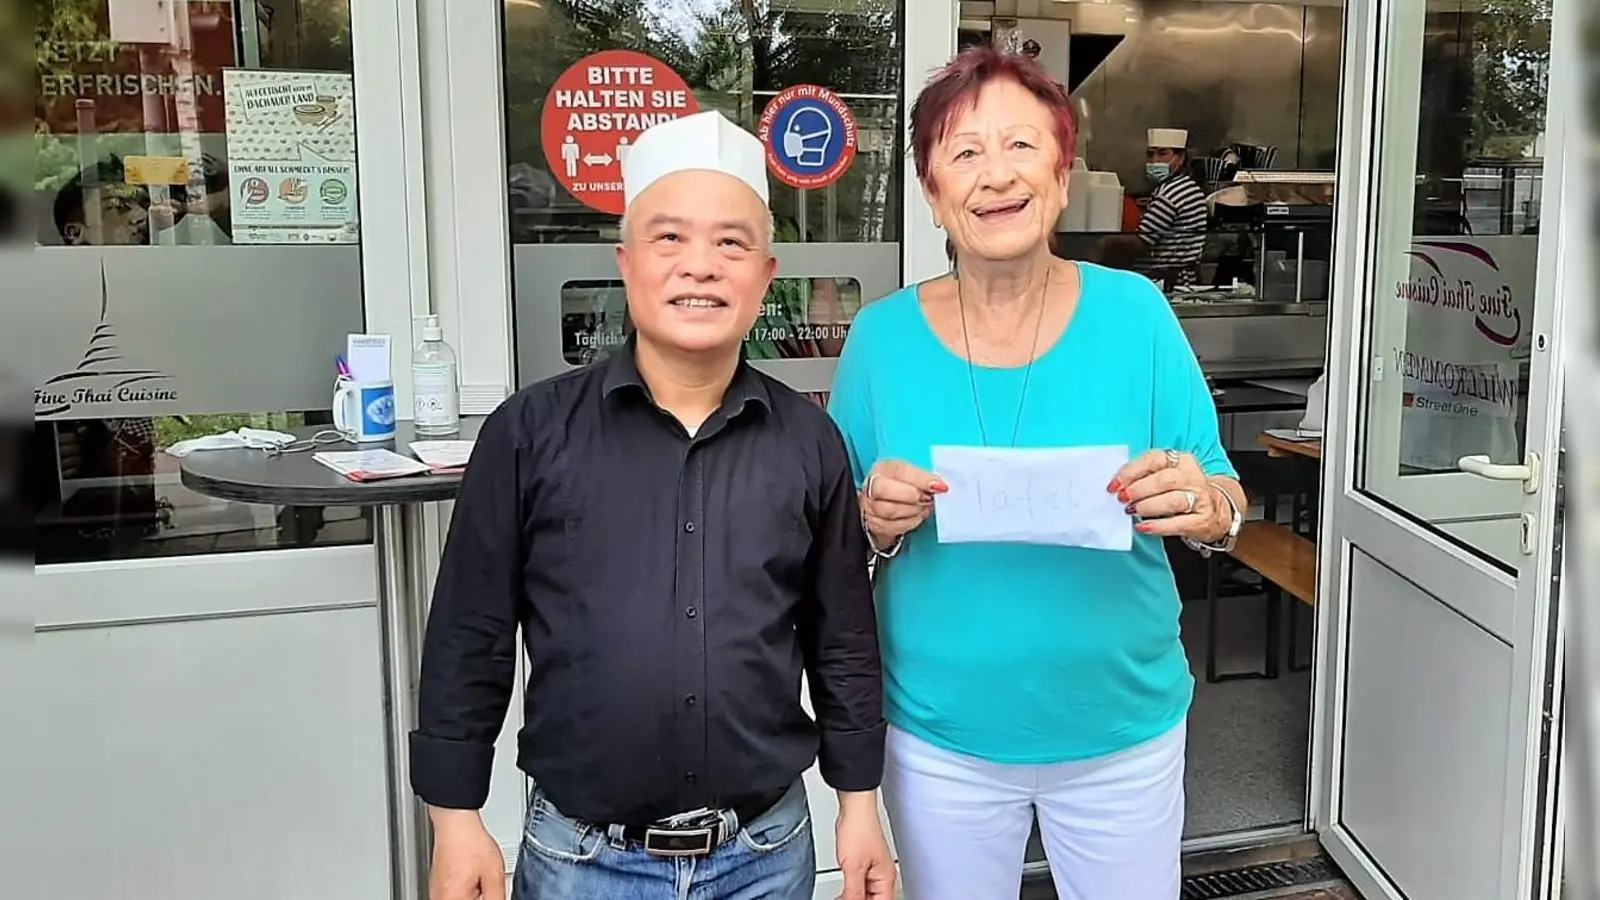 JETZT
ERFRISCHEN.
AUFGETISCHT
DACHAUER LAND
OHNE ABFALL SCHMECKT'S BESSER!
Fine Thai Cuisine
BITTE
HALTEN SIE
ABSTAND!
ZU UNSERE
Ab hier nur mit Mundschutz
en:
Täglich
17:00 - 22:00 Uh
Tafel
Fine Thai Cuisine
WILLKOMMEN
Street One